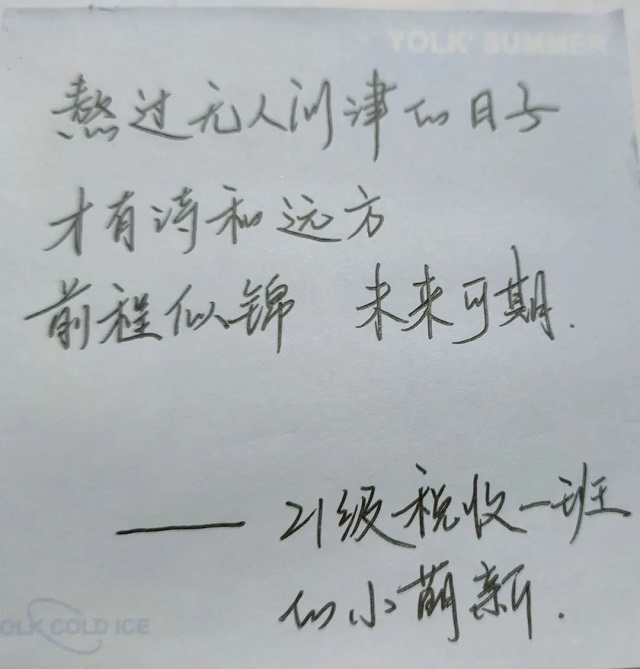 YOLK' SUMMER
熬过无人问津的日子
才有诗和远方
前程似锦 未来可期.
—— 21级税收一班
的小萌新.
OLK COLD ICE